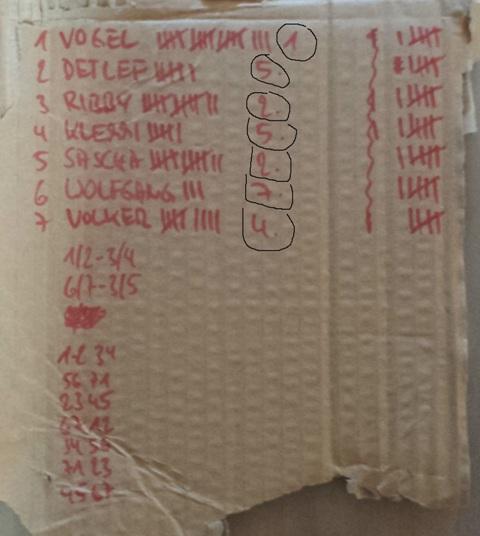 1 VOGEL 𝍸 𝍸 𝍸 III 1
2 DETLEF 𝍸 I 5.
3 RIBBY 𝍸 𝍸 II 2.
4 KLESSI 𝍸 5.
5 SASCHA 𝍸 𝍸 II 2.
6 WOLFGANG III 7.
7 VOLKER 𝍸 IIII 4.
1/2-3/4
6/7-3/5
1-2 34
56 71
23 45
67 12
34 56
71 23
45 67